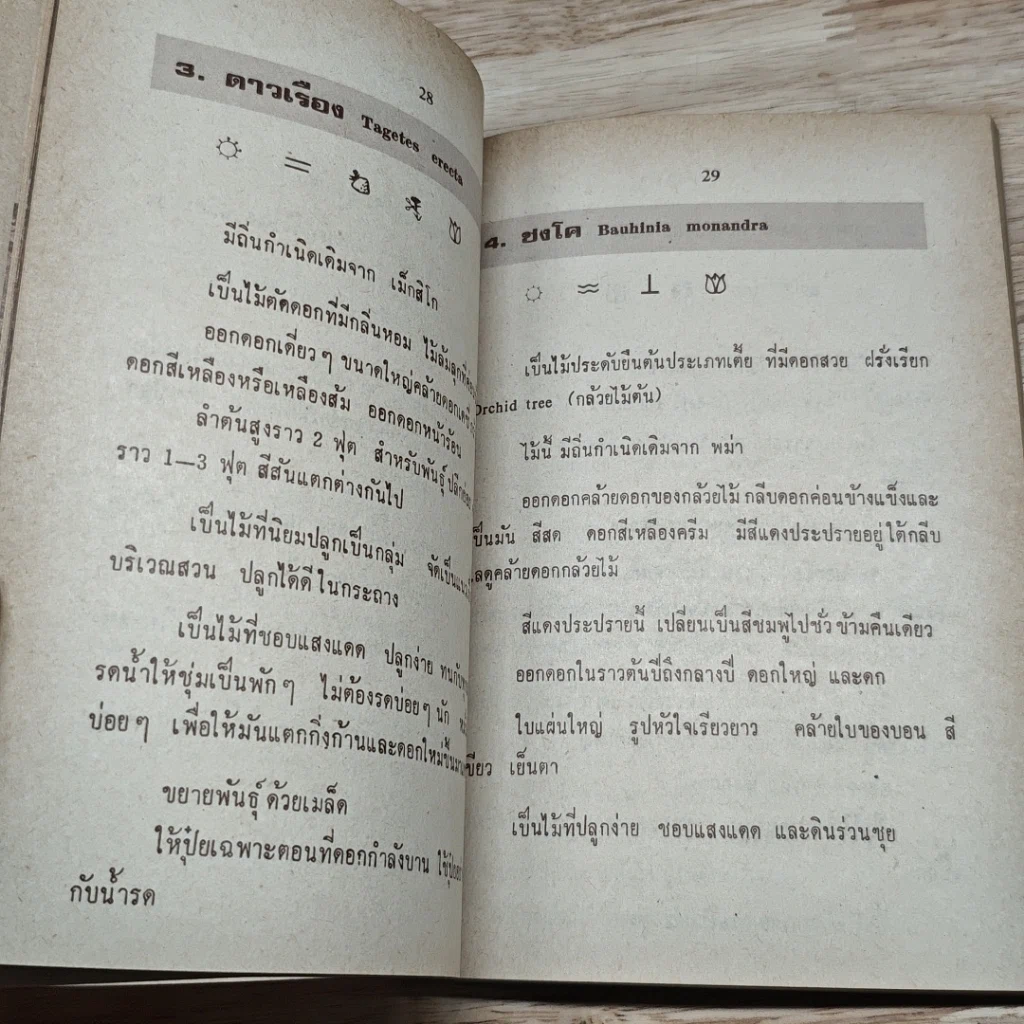 28
3. ดาวเรือง Tagetes erecta
มีถิ่นกำเนิดเดิมจาก เม็กสิโก
เป็นไม้ตัดดอกที่มีกลิ่นหอม ไม้ล้มลุก
ออกดอกเดี่ยวๆ ขนาดใหญ่คล้ายดอก
ดอกสีเหลืองหรือเหลืองส้ม ออกดอกหน้าร้อน
ลำต้นสูงราว 2 ฟุต สำหรับพันธุ์
ราว 1—3 ฟุต สีสันแตกต่างกันไป
เป็นไม้ที่นิยมปลูกเป็นกลุ่ม จัดเป็น
บริเวณสวน ปลูกได้ดีในกระถาง
เป็นไม้ที่ชอบแสงแดด ปลูกง่าย
รดน้ำให้ชุ่มเป็นพักๆ ไม่ต้องรดบ่อยๆ นัก
บ่อยๆ เพื่อให้มันแตกกิ่งก้านและดอกใหม่ขึ้น
ขยายพันธุ์ ด้วยเมล็ด
ให้ปุ๋ยเฉพาะตอนที่ดอกกำลังบาน
กับน้ำรด
29
4. ชงโค Bauhinia monandra
เป็นไม้ประดับยืนต้นประเภทเตี้ย ที่มีดอกสวย ฝรั่งเรียก
Orchid tree (กล้วยไม้ต้น)
ไม้นี้ มีถิ่นกำเนิดเดิมจาก พม่า
ออกดอกคล้ายดอกของกล้วยไม้ กลีบดอกค่อนข้างแข็งและ
เป็นมัน สีสด ดอกสีเหลืองครีม มีสีแดงประปรายอยู่ใต้กลีบ
ดูคล้ายดอกกล้วยไม้
สีแดงประปรายนี้ เปลี่ยนเป็นสีชมพูไปชั่วข้ามคืนเดียว
ออกดอกในราวต้นปีถึงกลางปี ดอกใหญ่ และดก
ใบแผ่นใหญ่ รูปหัวใจเรียวยาว คล้ายใบของบอน สี
เขียว เย็นตา
เป็นไม้ที่ปลูกง่าย ชอบแสงแดด และดินร่วนซุย